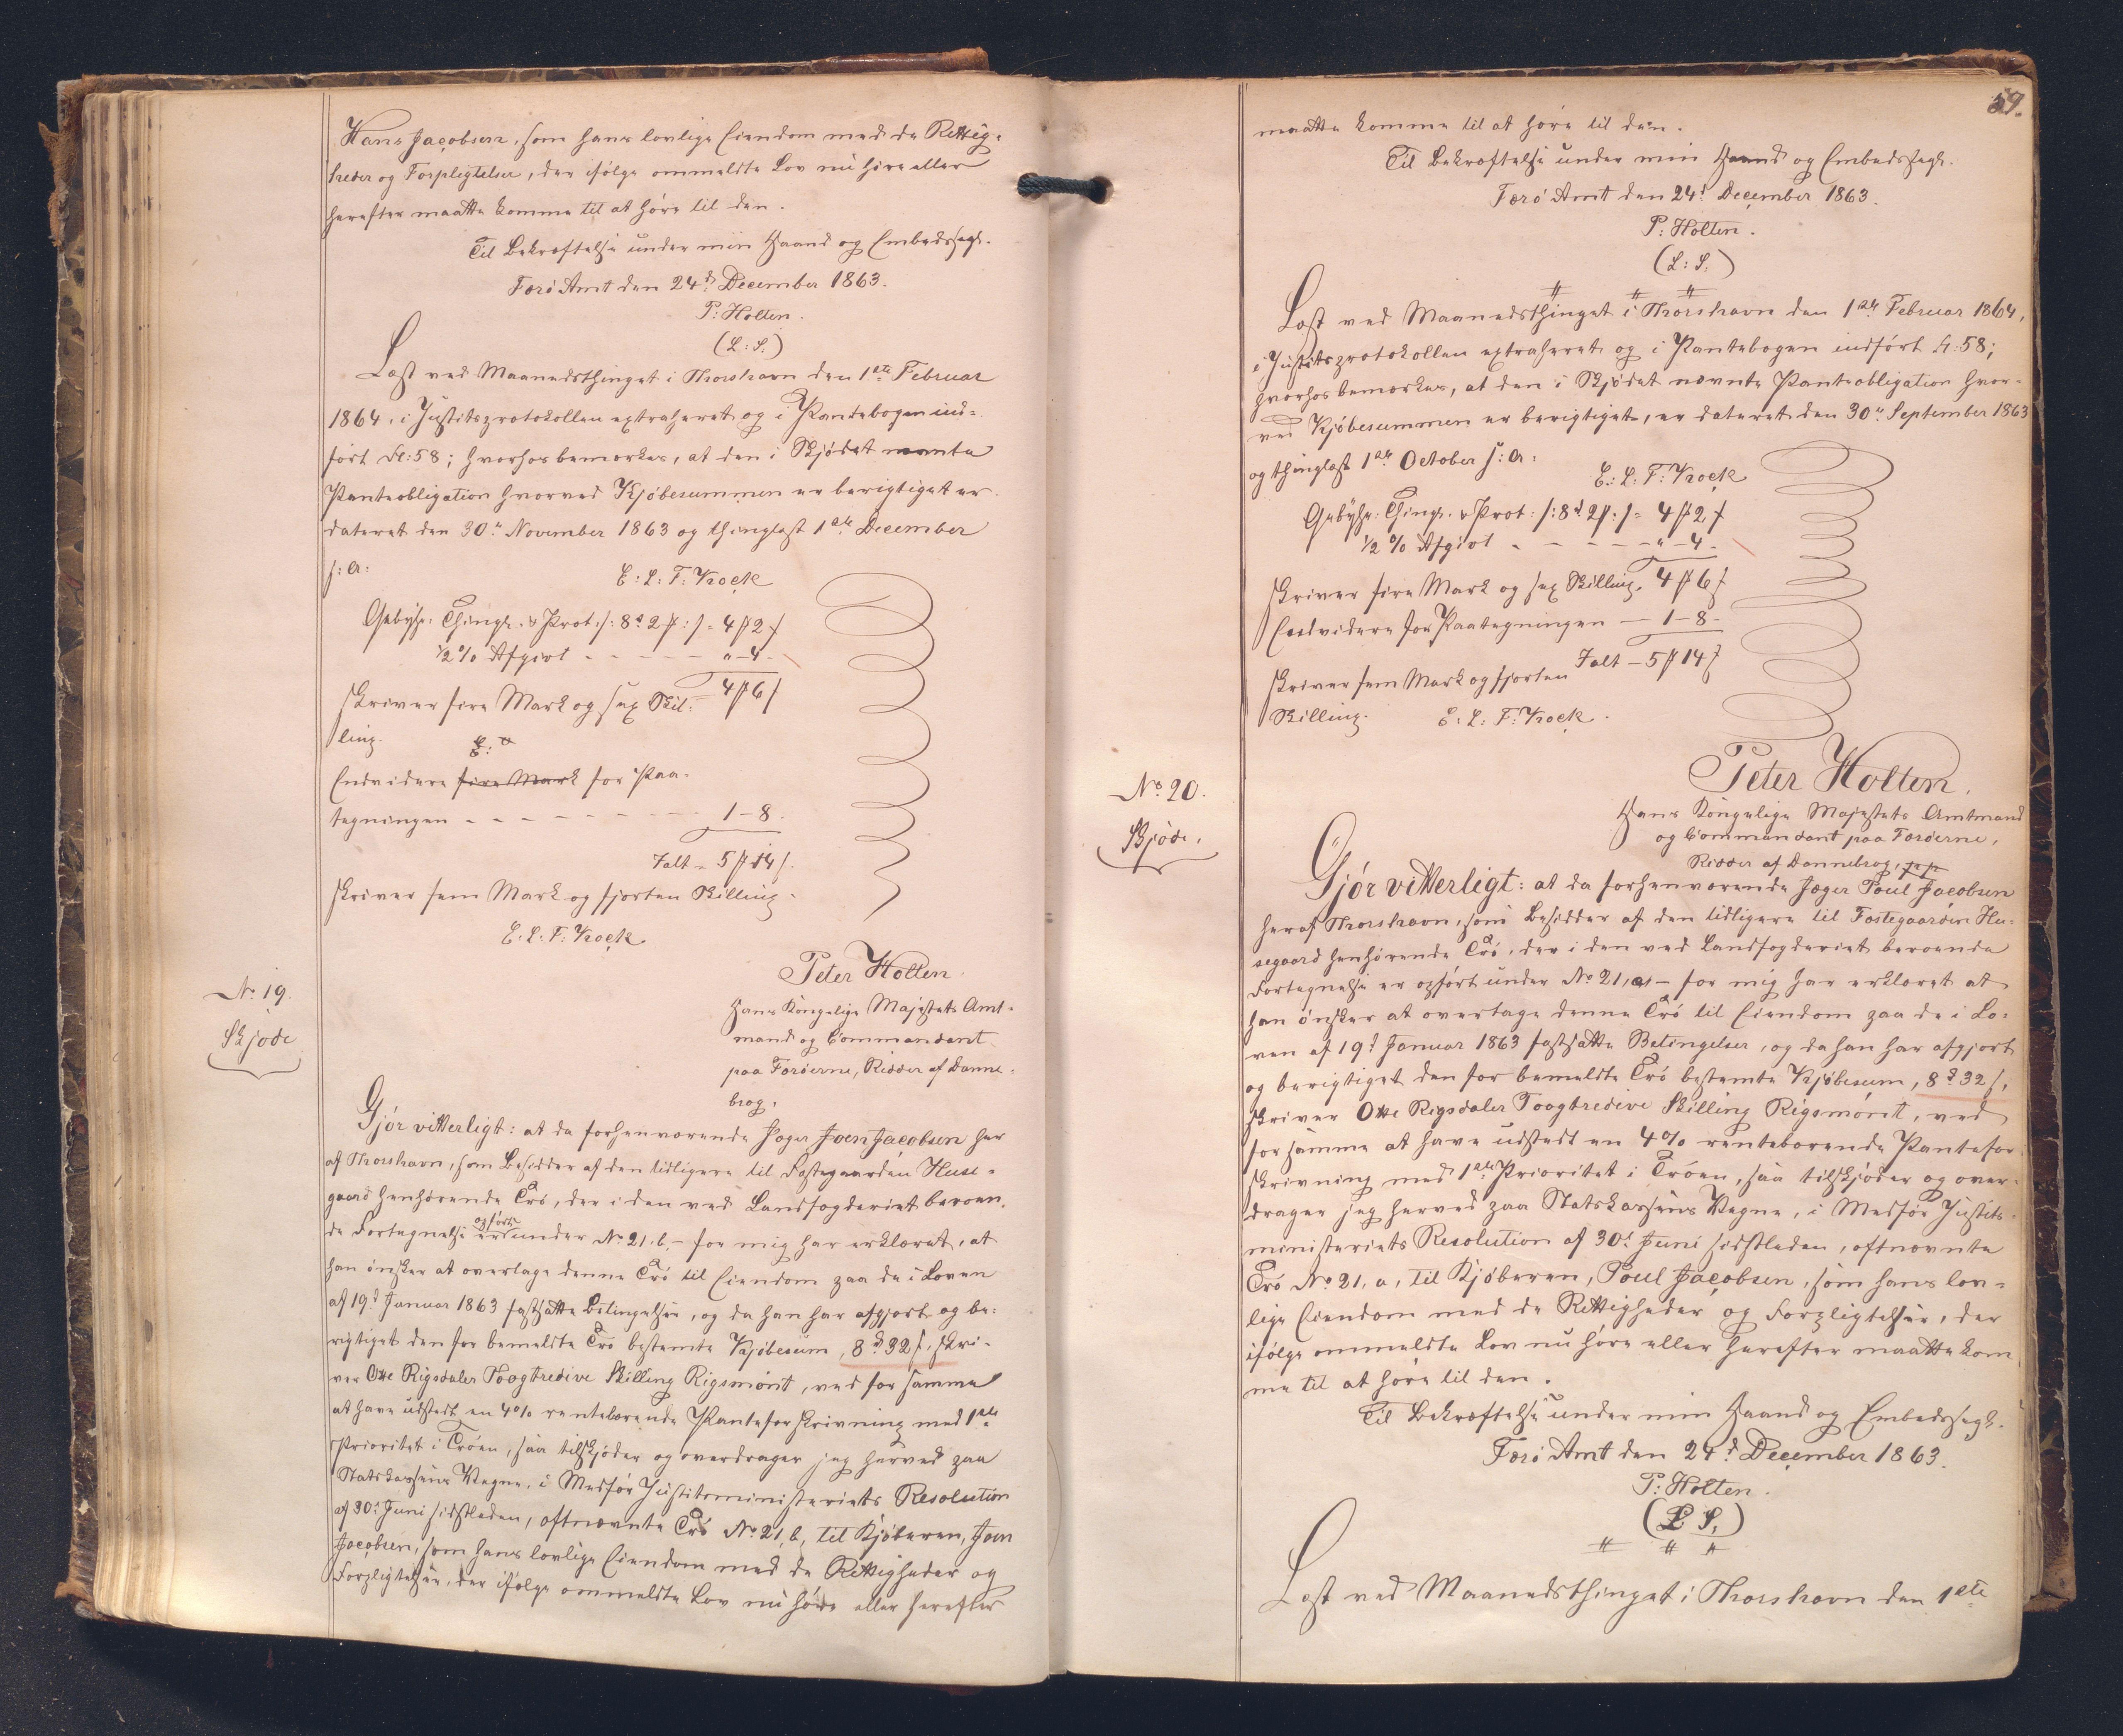 Hans Jacobsen, som hans lovlige Eiendom med de Rettig-
heder og Forpligtelser, der ifølge ommeldte Lov nu høre eller
herefter maatte komme til at høre til den.
Til Bekræftelse under min Haand og Embedssegl.
Færø Amt den 24d December 1863.
P: Holten.
(L: S.)
Læst ved Maanedsthinget i Thorshavn den 1ste Februar
1864, i Justitsprotokollen extraheret og i Pantebogen ind-
ført Fl: 58; hvorhos bemærkes, at den i Skjødet nævnte
Panteobligation hvorved Kjøbesummen er berigtiget er
dateret den 30te November 1863 og thinglæst 1ste December
s: A:
E: L: F: Krock
Gebyhr: Thingl. & Prot: /: 8d 2ß :/ = 4 ß 2 ß
1/2 % Afgivt - - - - - " - 4 -
skriver fire Mark og sex Skil- 4 ß 6 ß
ling.
E:
Endvidere fire Mark for Paa-
tegningen - - - - - - - - - 1 - 8 -
Ialt - 5 ß 14 ß.
skriver fem Mark og fjorten Skilling.
E: L: F: Krock
No 19.
Skjøde
Peter Holten
Hans Kongelige Majestæts Amt-
mand og Commandant
paa Færøerne, Ridder af Danne-
brog,
Gjør vitterligt: at da forhenværende Jæger Joen Jacobsen her
af Thorshavn, som Besidder af den tidligere til Fæstegaarden Huse-
gaard henhørende Trø, der i den ved Landfogderiet beroen-
de Fortegnelse er opført under No 21. b, - for mig har erklæret, at
han ønsker at overtage denne Trø til Eiendom paa de i Loven
af 19d Januar 1863 fastsatte Betingelser, og da han har afgjort og be-
rigtiget den for bemeldte Trø bestemte Kjøbesum, 8 d 32 ß, skri-
ver Otte Rigsdaler Toogtredive Skilling Rigsmønt, ved for samme
at have udstedt en 4% rentebærende Panteforskrivning med 1ste
Prioritet i Trøen, saa tilskjøder og overdrager jeg herved paa
Statskassens Vegne, i Medfør Justitsministeriets Resolution
af 30d Juni sidstleden, oftnævnte Trø No 21, b, til Kjøberen, Joen
Jacobsen, som hans lovlige Eiendom med de Rettigheder og
Forpligtelser, der ifølge ommeldte Lov nu høre eller herefter
59.
maatte komme til at høre til den.
Til Bekræftelse under min Haand og Embedssegl.
Færø Amt den 24d December 1863.
P: Holten.
(L: S.)
Læst ved Maanedsthinget i Thorshavn den 1ste Februar 1864,
i Justitsprotokollen extraheret og i Pantebogen indført Fl: 58;
hvorhos bemærkes, at den i Skjødet nævnte Panteobligation hvor-
ved Kjøbesummen er berigtiget, er dateret den 30te September 1863
og thinglæst 1ste October s: A:
E: L: F: Krock
Gebyhr: Thingl. & Prot: /: 8d 2ß :/ = 4 ß 2 ß
1/2 % Afgivt - - - - - " - 4 -
skriver fire Mark og sex Skilling. 4 ß 6 ß
Endvidere for Paategningen - 1 - 8 -
Ialt - 5 ß 14 ß
skriver fem Mark og fjorten
Skilling. E: L: F: Krock.
No 20.
Skjøde.
Peter Holten,
Hans Kongelige Majestæts Amtmand
og Commandant paa Færøerne,
Ridder af Dannebrog,
Gjør vitterligt: at da forhenværende Jæger Poul Jacobsen
heraf Thorshavn, som Besidder af den tidligere til Fæstegaarden Hu-
segaard henhørende Trø, der i den ved Landfogderiet beroende
Fortegnelse er opført under No 21, a, - for mig har erklæret at
han ønsker at overtage denne Trø til Eiendom paa de i Lo-
ven af 19d Januar 1863 fastsatte Betingelser, og da han har afgjort
og berigtiget den for bemeldte Trø bestemte Kjøbesum, 8 d 32 ß,
skriver Otte Rigsdaler Toogtredive Skilling Rigsmønt, ved
for samme at have udstedt en 4% rentebærende Pantefor-
skrivning med 1ste Prioritet i Trøen, saa tilskjøder og over-
drager jeg herved paa Statskassens Vegne, i Medfør Justits-
ministeriets Resolution af 30d Juni sidstleden, oftnævnte
Trø No 21, a, til Kjøberen, Poul Jacobsen, som hans lov-
lige Eiendom med de Rettigheder og Forpligtelser, der
ifølge ommeldte Lov nu høre eller herefter maatte kom
me til at høre til den.
Til Bekræftelse under min Haand og Embedssegl.
Færø Amt den 24d December 1863.
P: Holten.
(L S.)
Læst ved Maanedsthinget i Thorshavn den 1ste